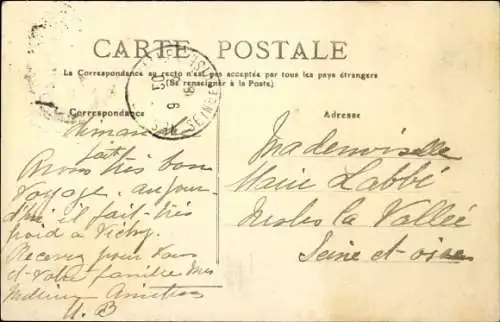 CARTE POSTALE
La Correspondance au recto n'est pas acceptée par tous les pays étrangers
(Se renseigner à la Poste)
Correspondance
Adresse
Dimanche
fait
Avons très bon
voyage. aujour-
d'hui il fait très
froid à Vichy.
Recevez pour vous
et votre famille mes
meilleurs Amitiés
Mademoiselle
Marie Labbé
Nesles la Vallée
Seine et oise